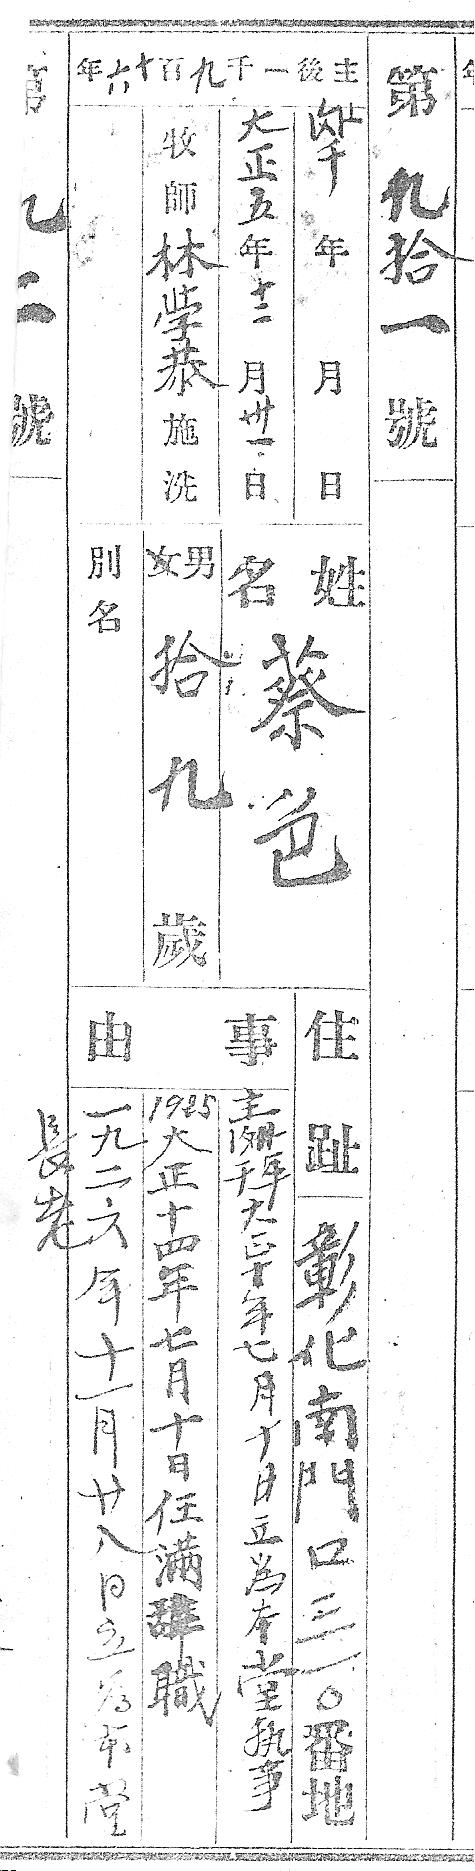 第九拾一號
主後一千九百十六年
年 月 日
大正五年十二月卅一日
牧師林學恭施洗
姓名
蔡邑
男女
拾九歲
別名
住趾
彰化南門口三一〇番地
事由
主拜大正十年七月十日立為本堂執事
1925
大正十四年七月十日任滿辭職
一九二六年十一月廿八日立為本堂
長老
第九二號
年